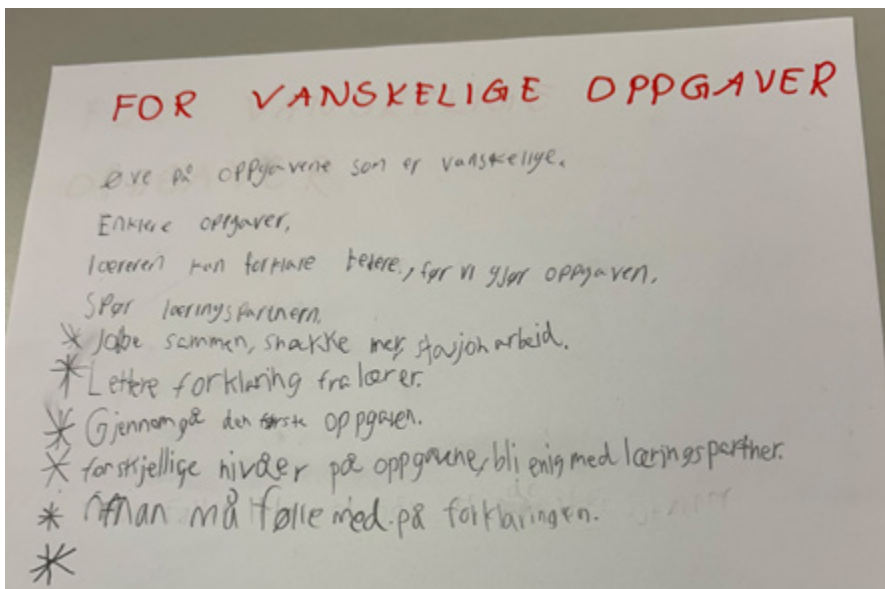 FOR VANSKELIGE OPPGAVER
Øve på oppgavene som er vanskelige.
Enklere oppgaver,
læreren kan forklare bedere, før vi gjør oppgaven.
Spør læringspartnern.
* Jobe sammen, snakke mer, stasjonarbeid.
* Lettere forklaring fra lærer.
* Gjennomgå den første oppgaven.
* forskjellige nivåer på oppgavene, bli enig med læringspartner.
* man må følle med på forklaringen.
*